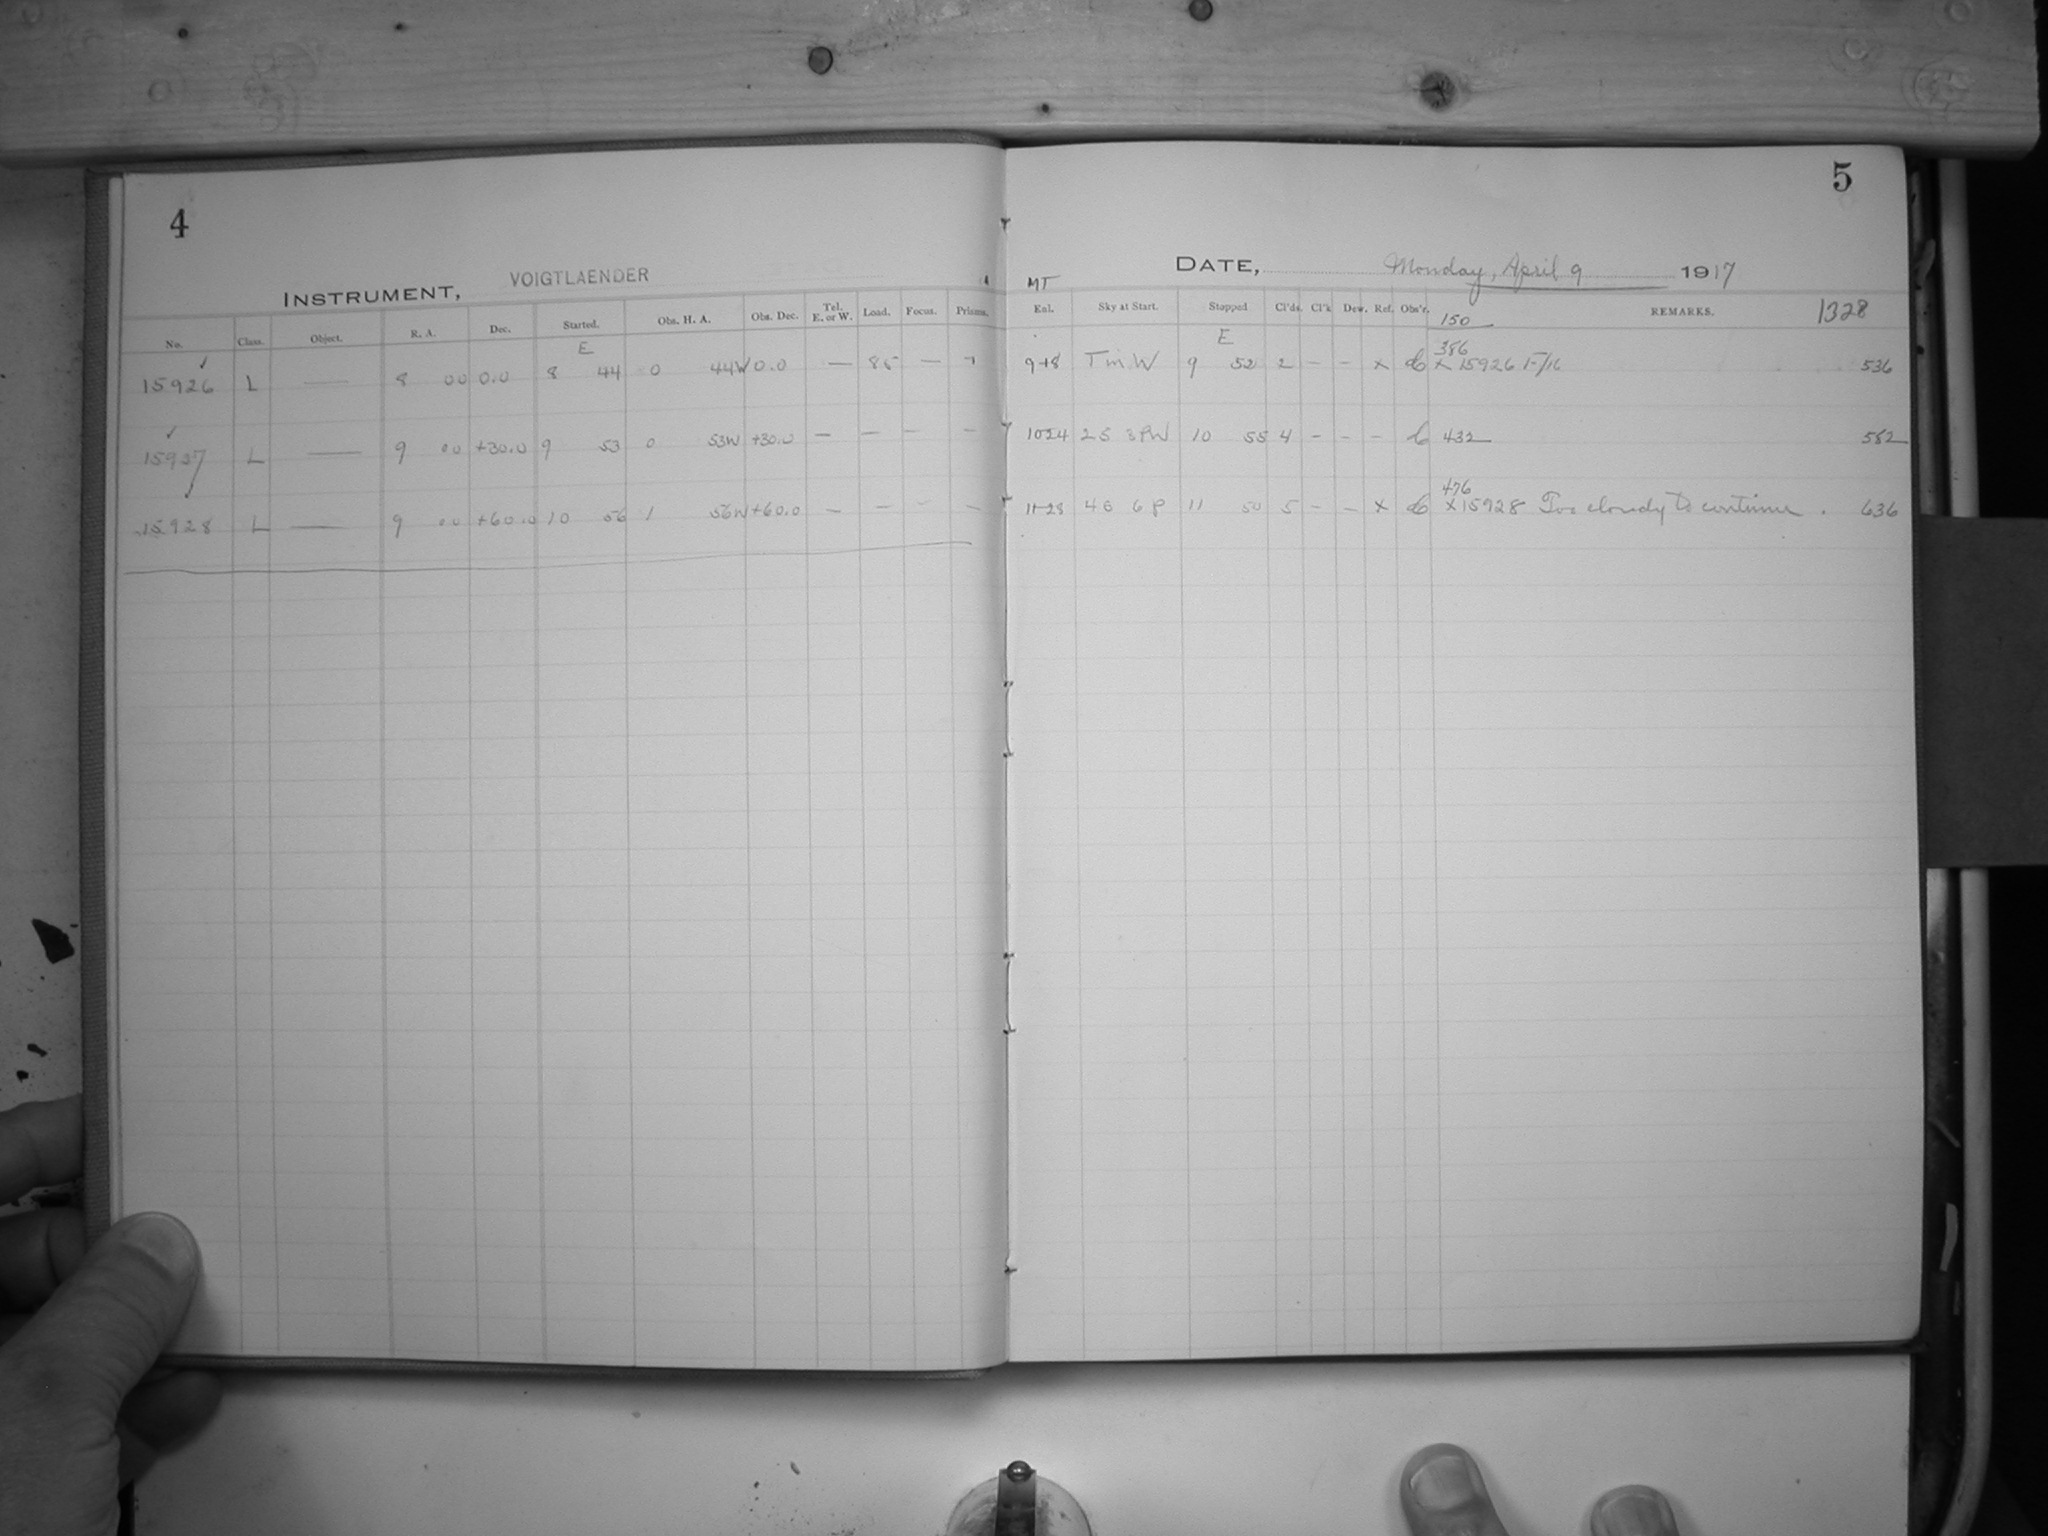 4
INSTRUMENT, VOIGTLAENDER
No. Class. Object. R. A. Dec. Started. Obs. H. A. Obs. Dec. Tel. E. or W. Load. Focus. Prisms.
E
15926 L — 8 00 0.0 8 44 0 44W 0.0 — 85 —
15927 L — 9 00 +30.0 9 53 0 53W +30.0 — — — —
15928 L — 9 00 +60.0 10 56 1 56W +60.0 — — — —
5
DATE, Monday, April 9 1917
MT
Enl. Sky at Start. Stopped Cl'ds. Cl'k Dew. Ref. Obs'r. REMARKS. 1328
150
E
386
9+8 T m W 9 52 2 — — x x 15926 536
10 24 2 S 3 PW 10 55 4 — — — 432 582
476
11 28 6 P 11 50 5 — — x x 15928 Too cloudy to continue. 636